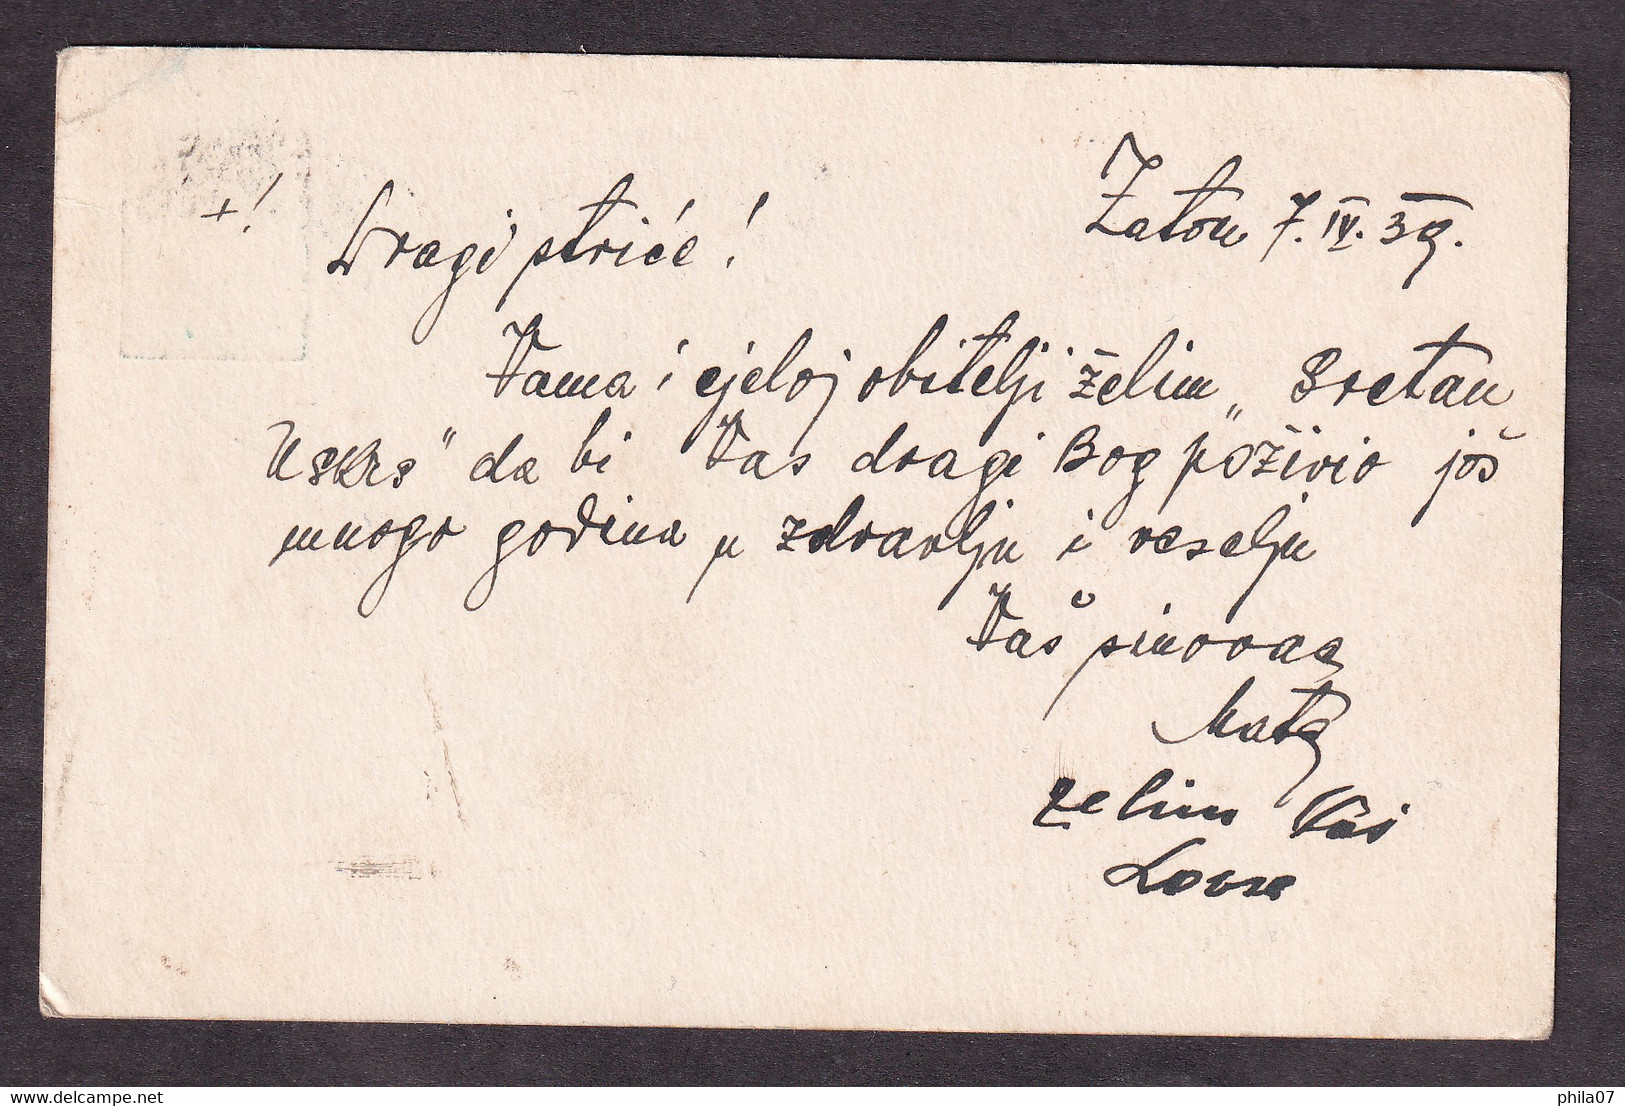 Zaton 7. IV. 39.
+!
Dragi striće!
Vama i cjeloj obitelji želim „Sretan
Uskrs" da bi Vas dragi Bog poživio još
mnogo godina u zdravlju i veselju
Vaš sinovac
Mate
želim Vaš
Lovre
www.delcampe.net
phila07